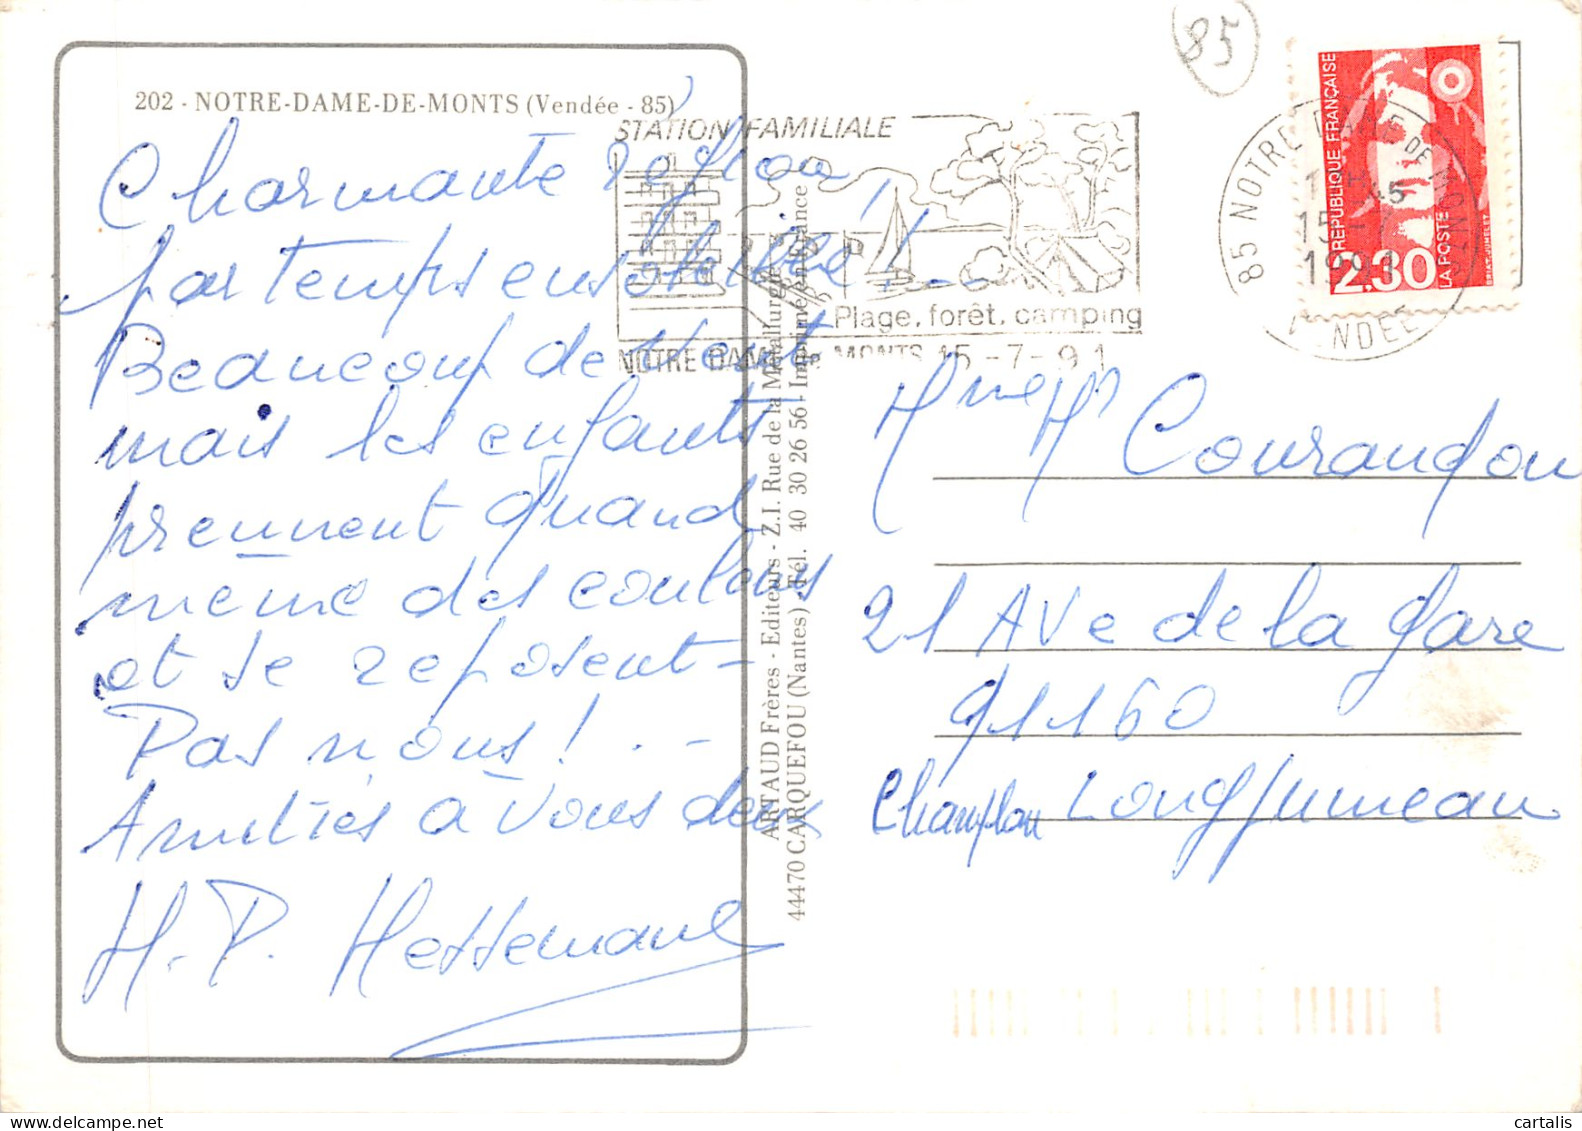 85
202 - NOTRE-DAME-DE-MONTS (Vendée - 85)
Charmante région,
par temps ensoleillé ! - .
Beaucoup de vent
mais les enfants
prennent quand
même des couleurs
et se reposent -
Pas nous ! . -
Amitiés à vous deux
H. P. Hesseman
STATION FAMILIALE
Plage, forêt, camping
NOTRE DAME DE MONTS 15 - 7 - 91
ARTAUD Frères - Editeurs - Z.I. Rue de la Métallurgie
44470 CARQUEFOU (Nantes) Tél. 40 30 26 56 - Imprimé en France
85 NOTRE DAME DE MONTS
15 - 7
1991
VENDEE
REPUBLIQUE FRANÇAISE
2.30
LA POSTE
BRIAT-JUMELET
Mme Mr Courandon
21 AVe de la gare
91160
Champlan Longjumeau
cartalis